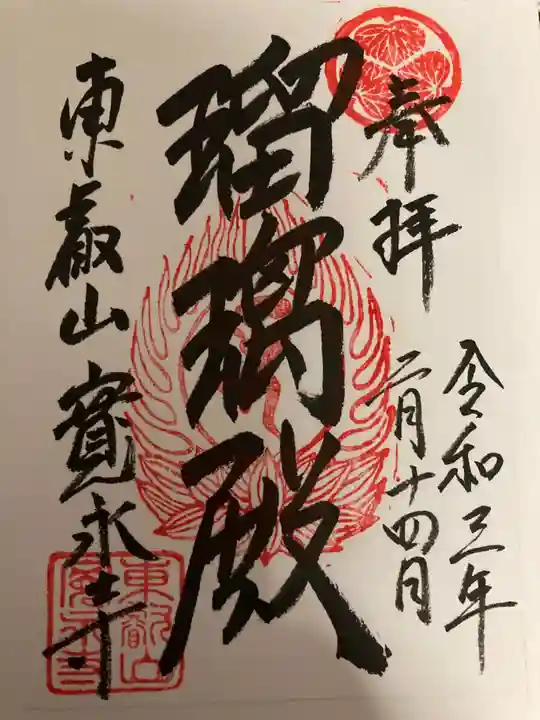 奉拝
令和三年
二月十四月
瑠璃殿
東叡山寛永寺
東叡山
寛永寺